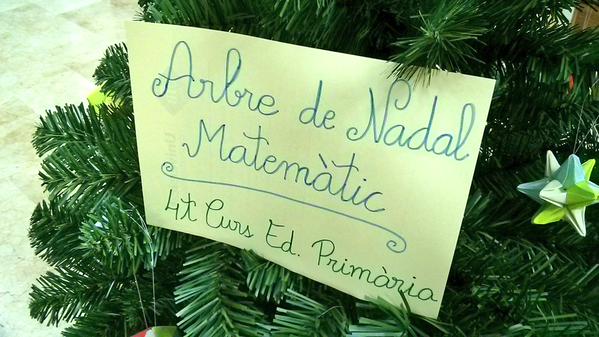 Arbre de Nadal
Matemàtic
4t Curs Ed. Primària